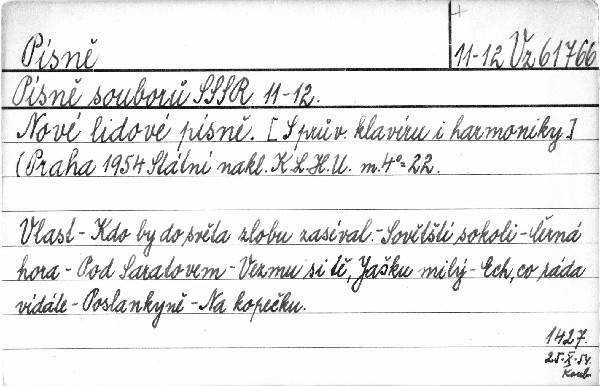 Písně
11-12 Vz 61766
Písně souborů SSSR 11-12.
Nové lidové písně. [S prův. klavíru i harmoniky.]
(Praha 1954 Státní nakl. K.L.H.U. m.4°=22.
Vlast - Kdo by do světa zlobu zasíval. - Sovětští sokoli - Černá
hora - Pod Saratovem - Vezmu si tě, Jašku milý - Ech, co ráda
vidále - Poslankyně - Na kopečku.
1427.
25-X-54.